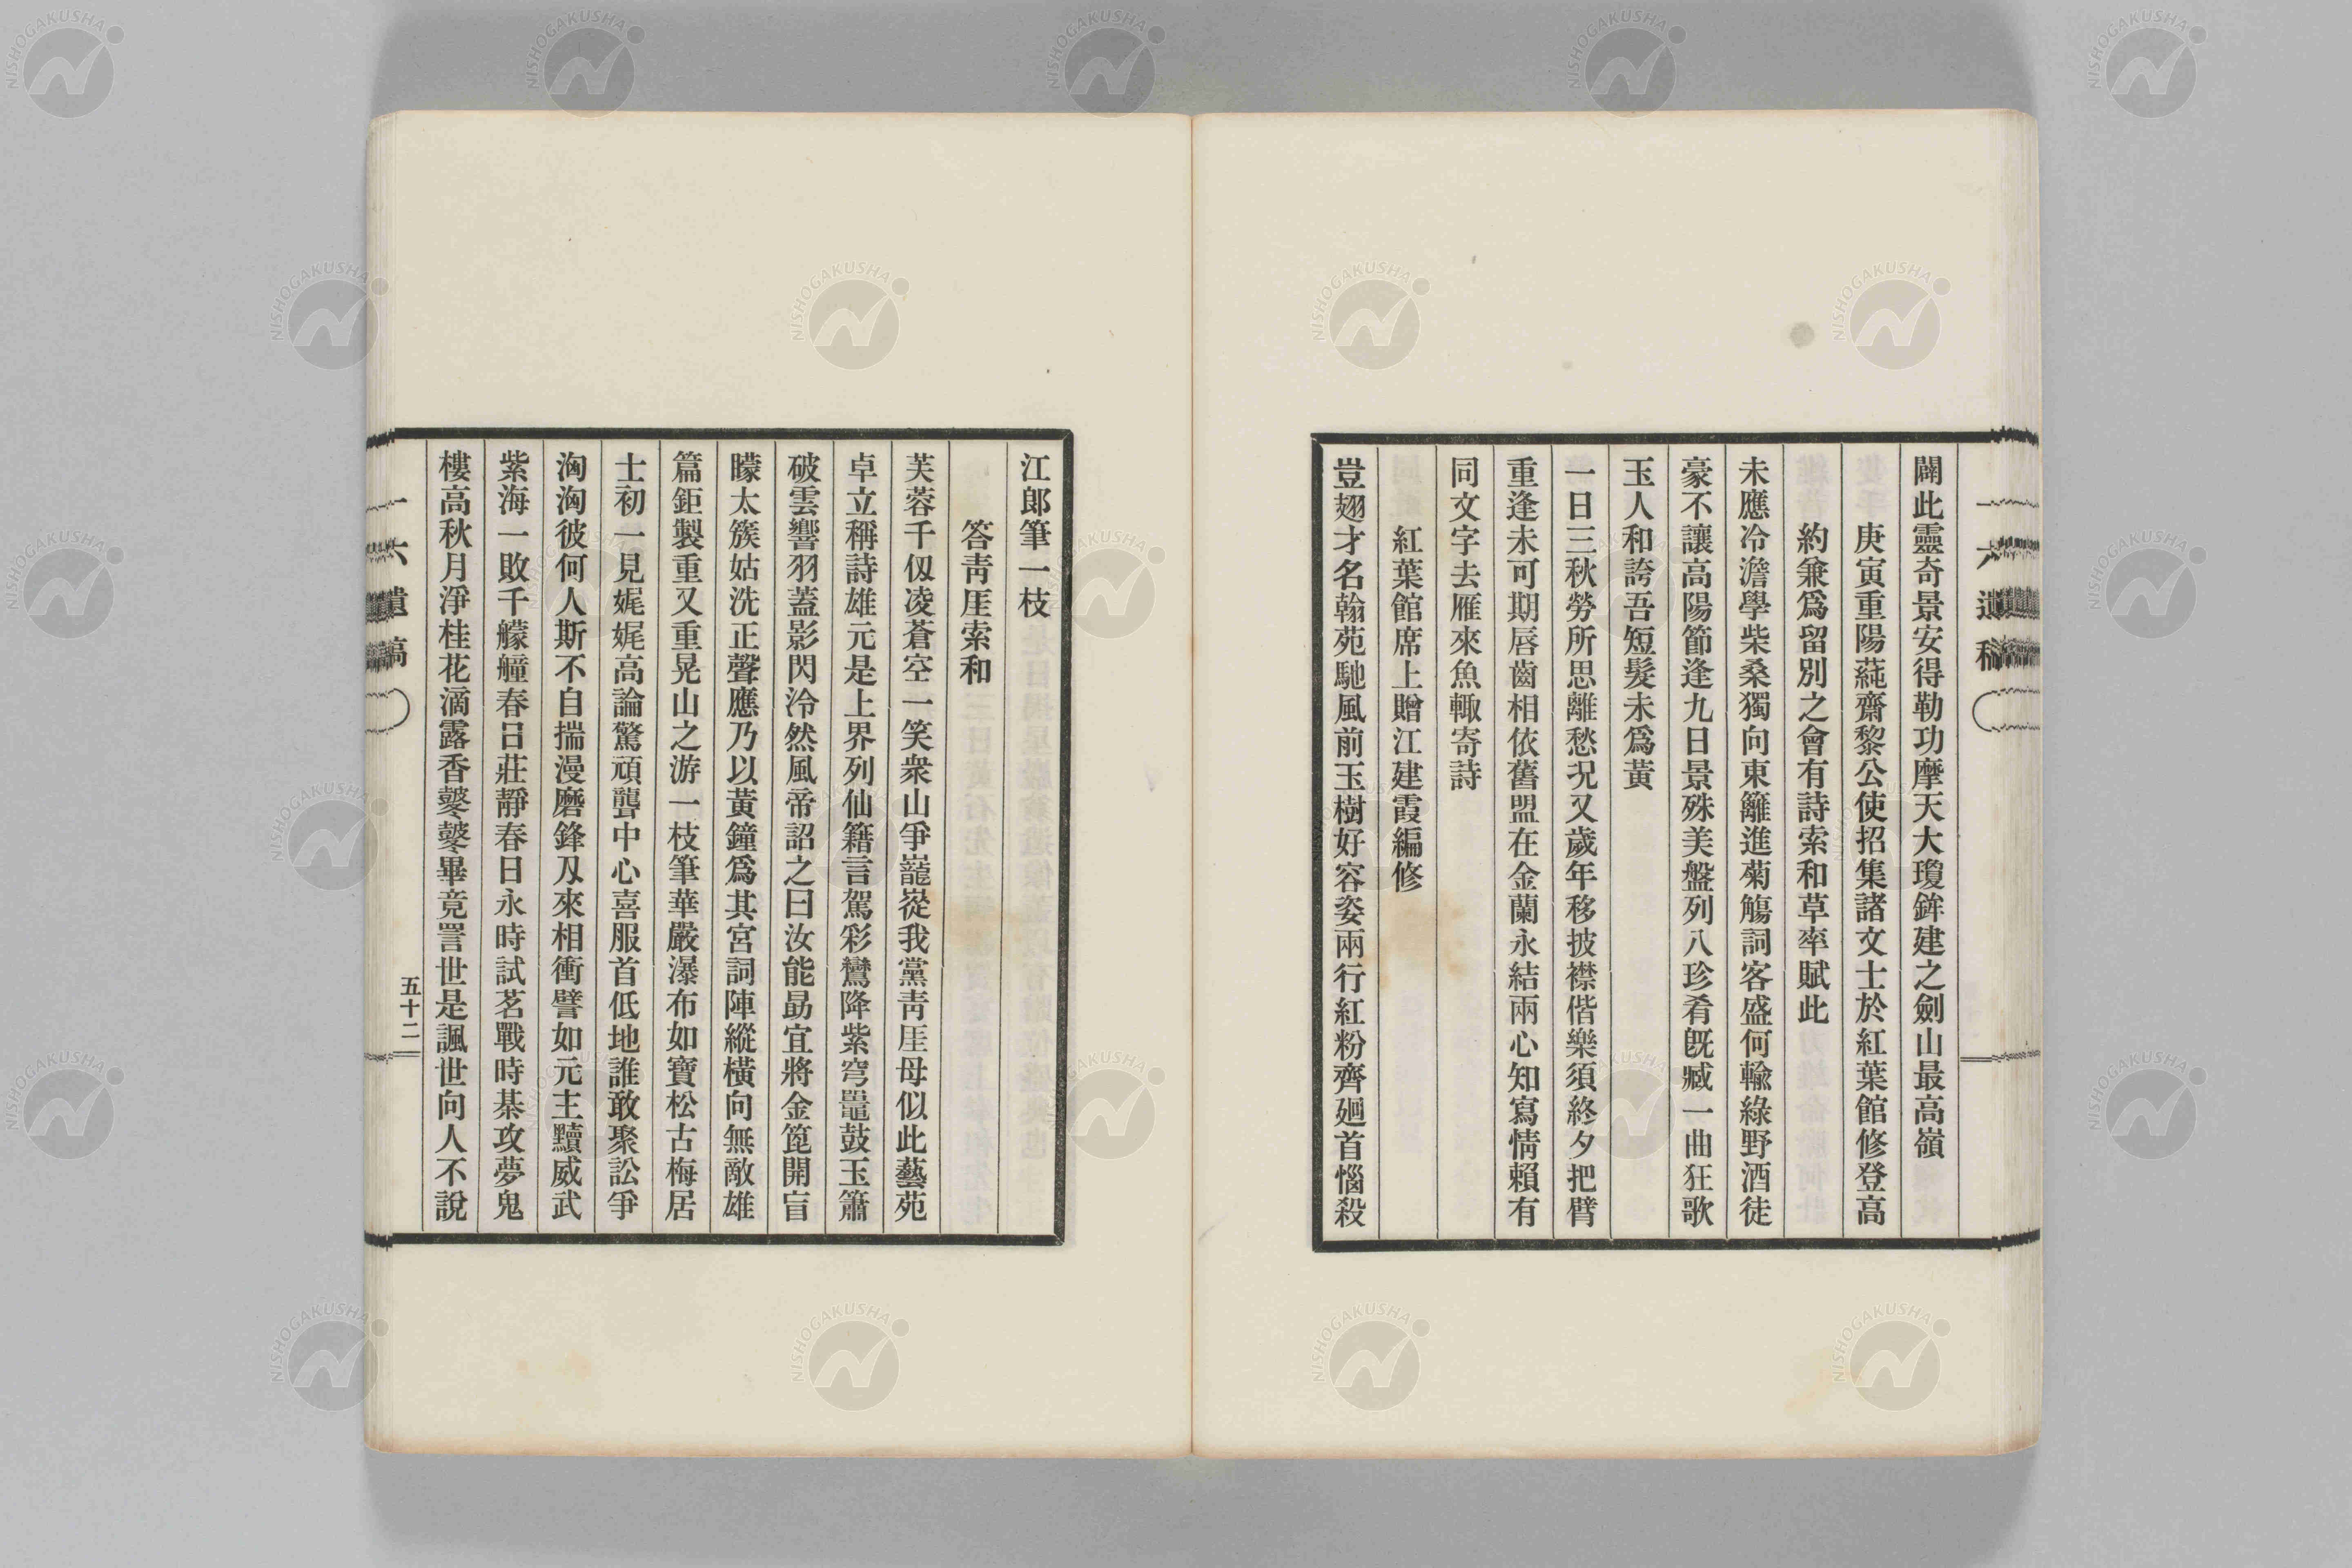 闢此靈奇景安得勒功摩天大瓊鉾建之劍山最高嶺
庚寅重陽蒓齋黎公使招集諸文士於紅葉館修登高
約兼爲留別之會有詩索和草率賦此
未應冷澹學柴桑獨向東籬進菊觴詞客盛何輸綠野酒徒
豪不讓高陽節逢九日景殊美盤列八珍肴旣臧一曲狂歌
玉人和誇吾短髮未爲黃
一日三秋勞所思離愁況又歲年移披襟偕樂須終夕把臂
重逢未可期唇齒相依舊盟在金蘭永結兩心知寫情賴有
同文字去雁來魚輙寄詩
紅葉館席上贈江建霞編修
豈翅才名翰苑馳風前玉樹好容姿兩行紅粉齊廻首惱殺
一六遺稿
江郎筆一枝
答靑厓索和
芙蓉千仭凌蒼空一笑衆山爭巃嵸我黨靑厓母似此藝苑
卓立稱詩雄元是上界列仙籍言駕彩鸞降紫穹鼉鼓玉簫
破雲響羽蓋影閃泠然風帝詔之曰汝能勗宜將金篦開盲
矇太簇姑洗正聲應乃以黃鐘爲其宮詞陣縱橫向無敵雄
篇鉅製重又重晃山之游一枝筆華嚴瀑布如寶松古梅居
士初一見娓娓高論驚頑聾中心喜服首低地誰敢聚訟爭
洶洶彼何人斯不自揣漫磨鋒刄來相衝譬如元主黷威武
紫海一敗千艨艟春日莊靜春日永時試茗戰時棊攻夢鬼
樓高秋月淨桂花滴露香鼕鼕畢竟詈世是諷世向人不說
一六遺稿
五十二
NISHOGAKUSHA